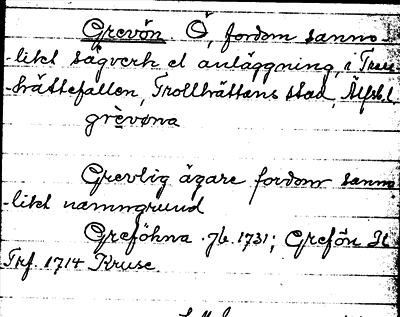 Grevön. Ö, fordom sanno-
-likt sågverk el anläggning, i Troll-
-hättefallen, Trollhättans stad, Älfsb.l
grèvøna
Grevlig ägare fordom sanno-
-likt namngrund
Greföhna Jb. 1731; Grefön
Trf. 1714 Kruse.